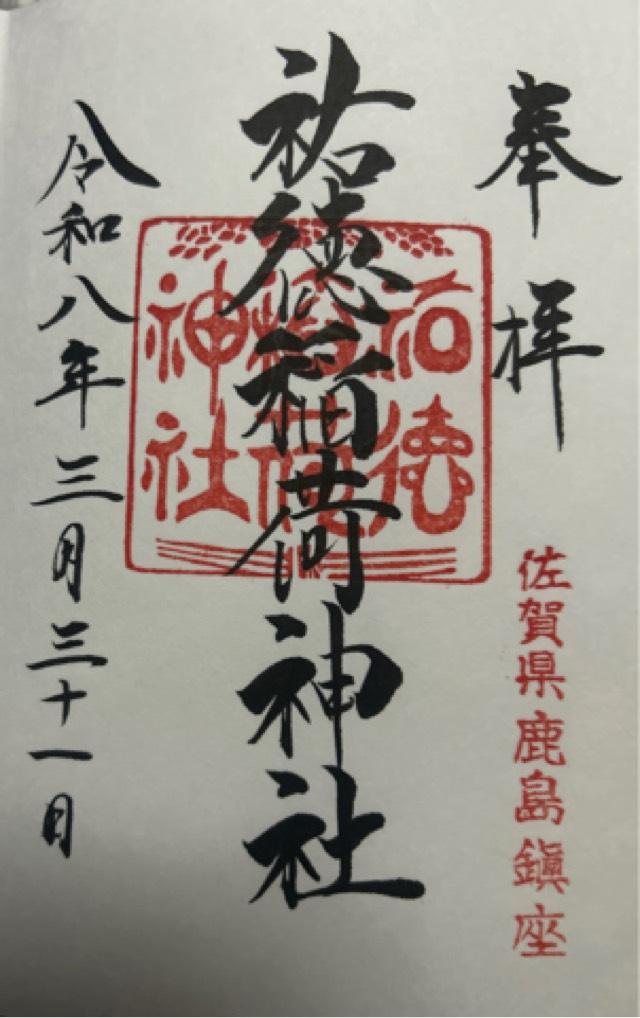 奉拝
佐賀県鹿島鎮座
祐徳稲荷神社
祐徳
稲荷
神社
令和八年三月三十一日